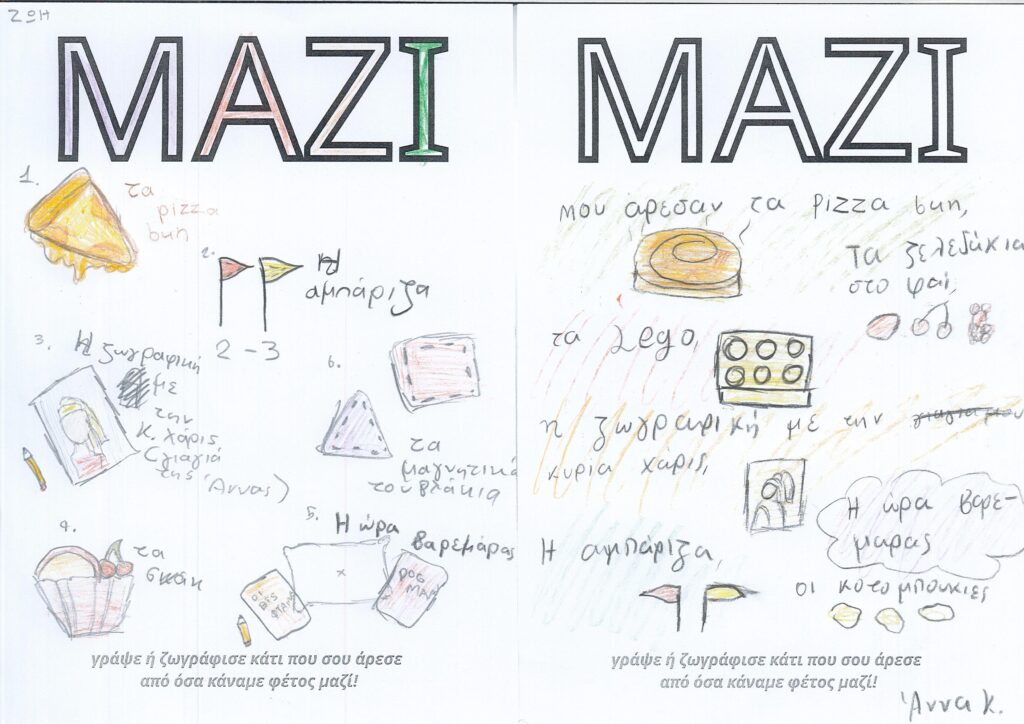 ΖΩΗ
ΜΑΖΙ
1.
τα
pizza
bun
2.
η
αμπάριζα
2-3
3.
Η ζωγραφική
με
την
κ. χάρις
(γιαγιά
της Άννας)
6.
τα
μαγνητικά
τουβλάκια
4.
τα
σκακ
5.
Η ώρα
βαρεμάρας
DOG
MAN
γράψε ή ζωγράφισε κάτι που σου άρεσε
από όσα κάναμε φέτος μαζί!
ΜΑΖΙ
μου άρεσαν τα pizza bun,
Τα ζελεδάκια
στο φαϊ,
τα Lego,
η ζωγραφική με την
κυρία χάρις,
Η ώρα βαρε-
μαρας
Η αμπάριζα,
οι κοτομπουκιές
γράψε ή ζωγράφισε κάτι που σου άρεσε
από όσα κάναμε φέτος μαζί!
Άννα Κ.